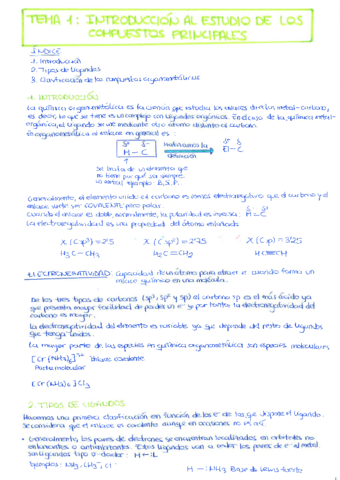 TEMA 1: INTRODUCCIÓN AL ESTUDIO DE LOS
COMPUESTOS PRINCIPALES
ÍNDICE
1. Introducción
2. Tipos de ligandos
3. Clasificación de los compuestos organometálicos
1. INTRODUCCIÓN
La química organometálica es la ciencia que estudia los enlaces directos metal-carbono,
es decir, lo que se tiene es un complejo con ligandos orgánicos. En el caso de la química metal-
orgánica, el ligando se une mediante otro átomo distinto al carbono.
En organometálica el enlace en general es:
δ+ δ-
M - C
generalización
δ+ δ-
El - C
Se trata de un elemento que
no tiene por qué ser siempre
un metal, ejemplo: B, Si, P.
Generalmente, el elemento unido al carbono es menos electronegativo que el carbono y el
enlace suele ser COVALENTE pero polar.
Cuando el enlace es doble, normalmente, la polaridad es inversa: M = C
La electronegatividad es una propiedad del átomo enlazado
X (Csp³) = 2'5
X (Csp²) = 2'75
X (Csp) = 3'25
H₃C - CH₃
H₂C = CH₂
HC≡CH
ELECTRONEGATIVIDAD: Capacidad de un átomo para atraer e⁻ cuando forma un
enlace químico en una molécula.
De los tres tipos de carbonos (sp³, sp² y sp) el carbono sp es el más ácido ya
que presenta mayor facilidad de perder un e⁻ y por tanto la electronegatividad del
carbono es mayor.
La electronegatividad del elemento es variable ya que depende del resto de ligandos
que tenga unidos.
La mayor parte de las especies en química organometálica son especies moleculares
[Cr(NH₃)₆]³⁺ Enlace covalente
Parte molecular
[Cr(NH₃)₆]Cl₃
2. TIPOS DE LIGANDOS
Haremos una primera clasificación en función de los e⁻ de los que dispone el ligando.
Se considera que el enlace es covalente aunque en ocasiones no es así
• Generalmente, los pares de electrones se encuentran localizados en orbitales no
enlazantes o antienlazantes. Estos ligandos van a ceder los pares de e⁻ al metal.
Son ligandos tipo σ-dador: M ← :L
Ejemplos: NH₃, CH₃⁻, Cl⁻
M ← :NH₃ Base de Lewis fuerte